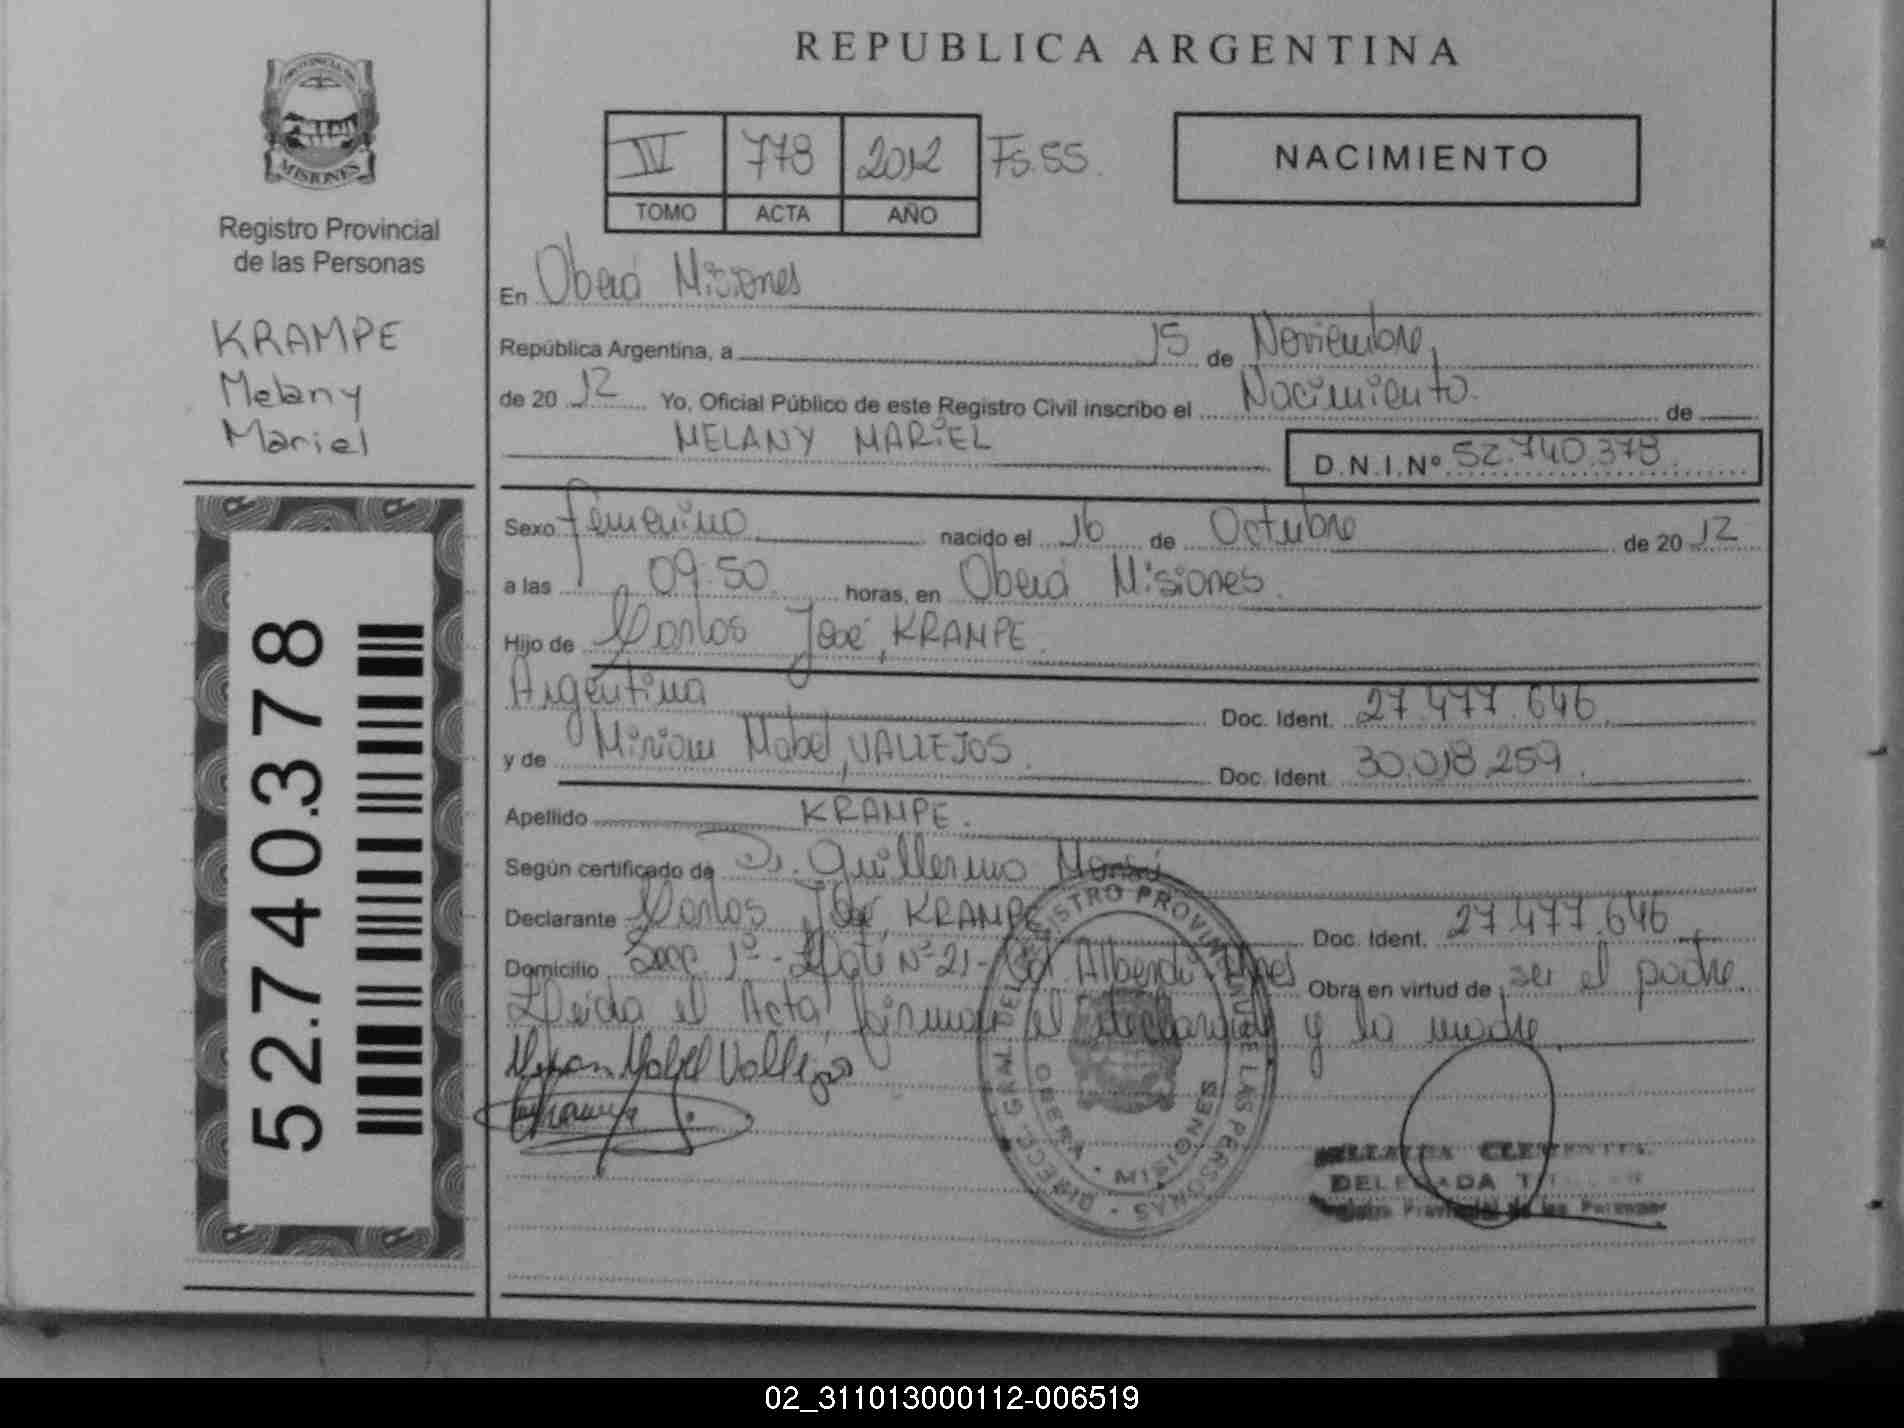 REPUBLICA ARGENTINA
PROVINCIA DE
MISIONES
Registro Provincial
de las Personas
KRAMPE
Melany
Mariel
52.740.378
IV 778 2012 Fs.55.
TOMO ACTA AÑO
NACIMIENTO
En Oberá Misiones
República Argentina, a 15 de Noviembre
de 2012 Yo, Oficial Público de este Registro Civil inscribo el Nacimiento. de
MELANY MARIEL D.N.I.Nº 52.740.378
Sexo femenino nacido el 16 de Octubre de 2012
a las 09:50 horas, en Oberá Misiones.
Hijo de Carlos José, KRAMPE.
Argentina Doc. Ident. 27.477.646
y de Miriam Mabel, VALLEJOS. Doc. Ident. 30.018.259
Apellido KRAMPE.
Según certificado de Dr. Guillermo
Declarante Carlos José, KRAMPE Doc. Ident. 27.477.646
Domicilio Secc. 1º - Lote Nº 21 - Alberdi - Mnes Obra en virtud de ser el padre.
Leída el Acta, firman el declarante y la madre.
Miriam Mabel Vallejos
DIRECC. GRAL. DEL REGISTRO PROVINCIAL DE LAS PERSONAS
OBERA - MISIONES
CLEMENTINA
DELEGADA
Registro Provincial de las Personas
02_311013000112-006519